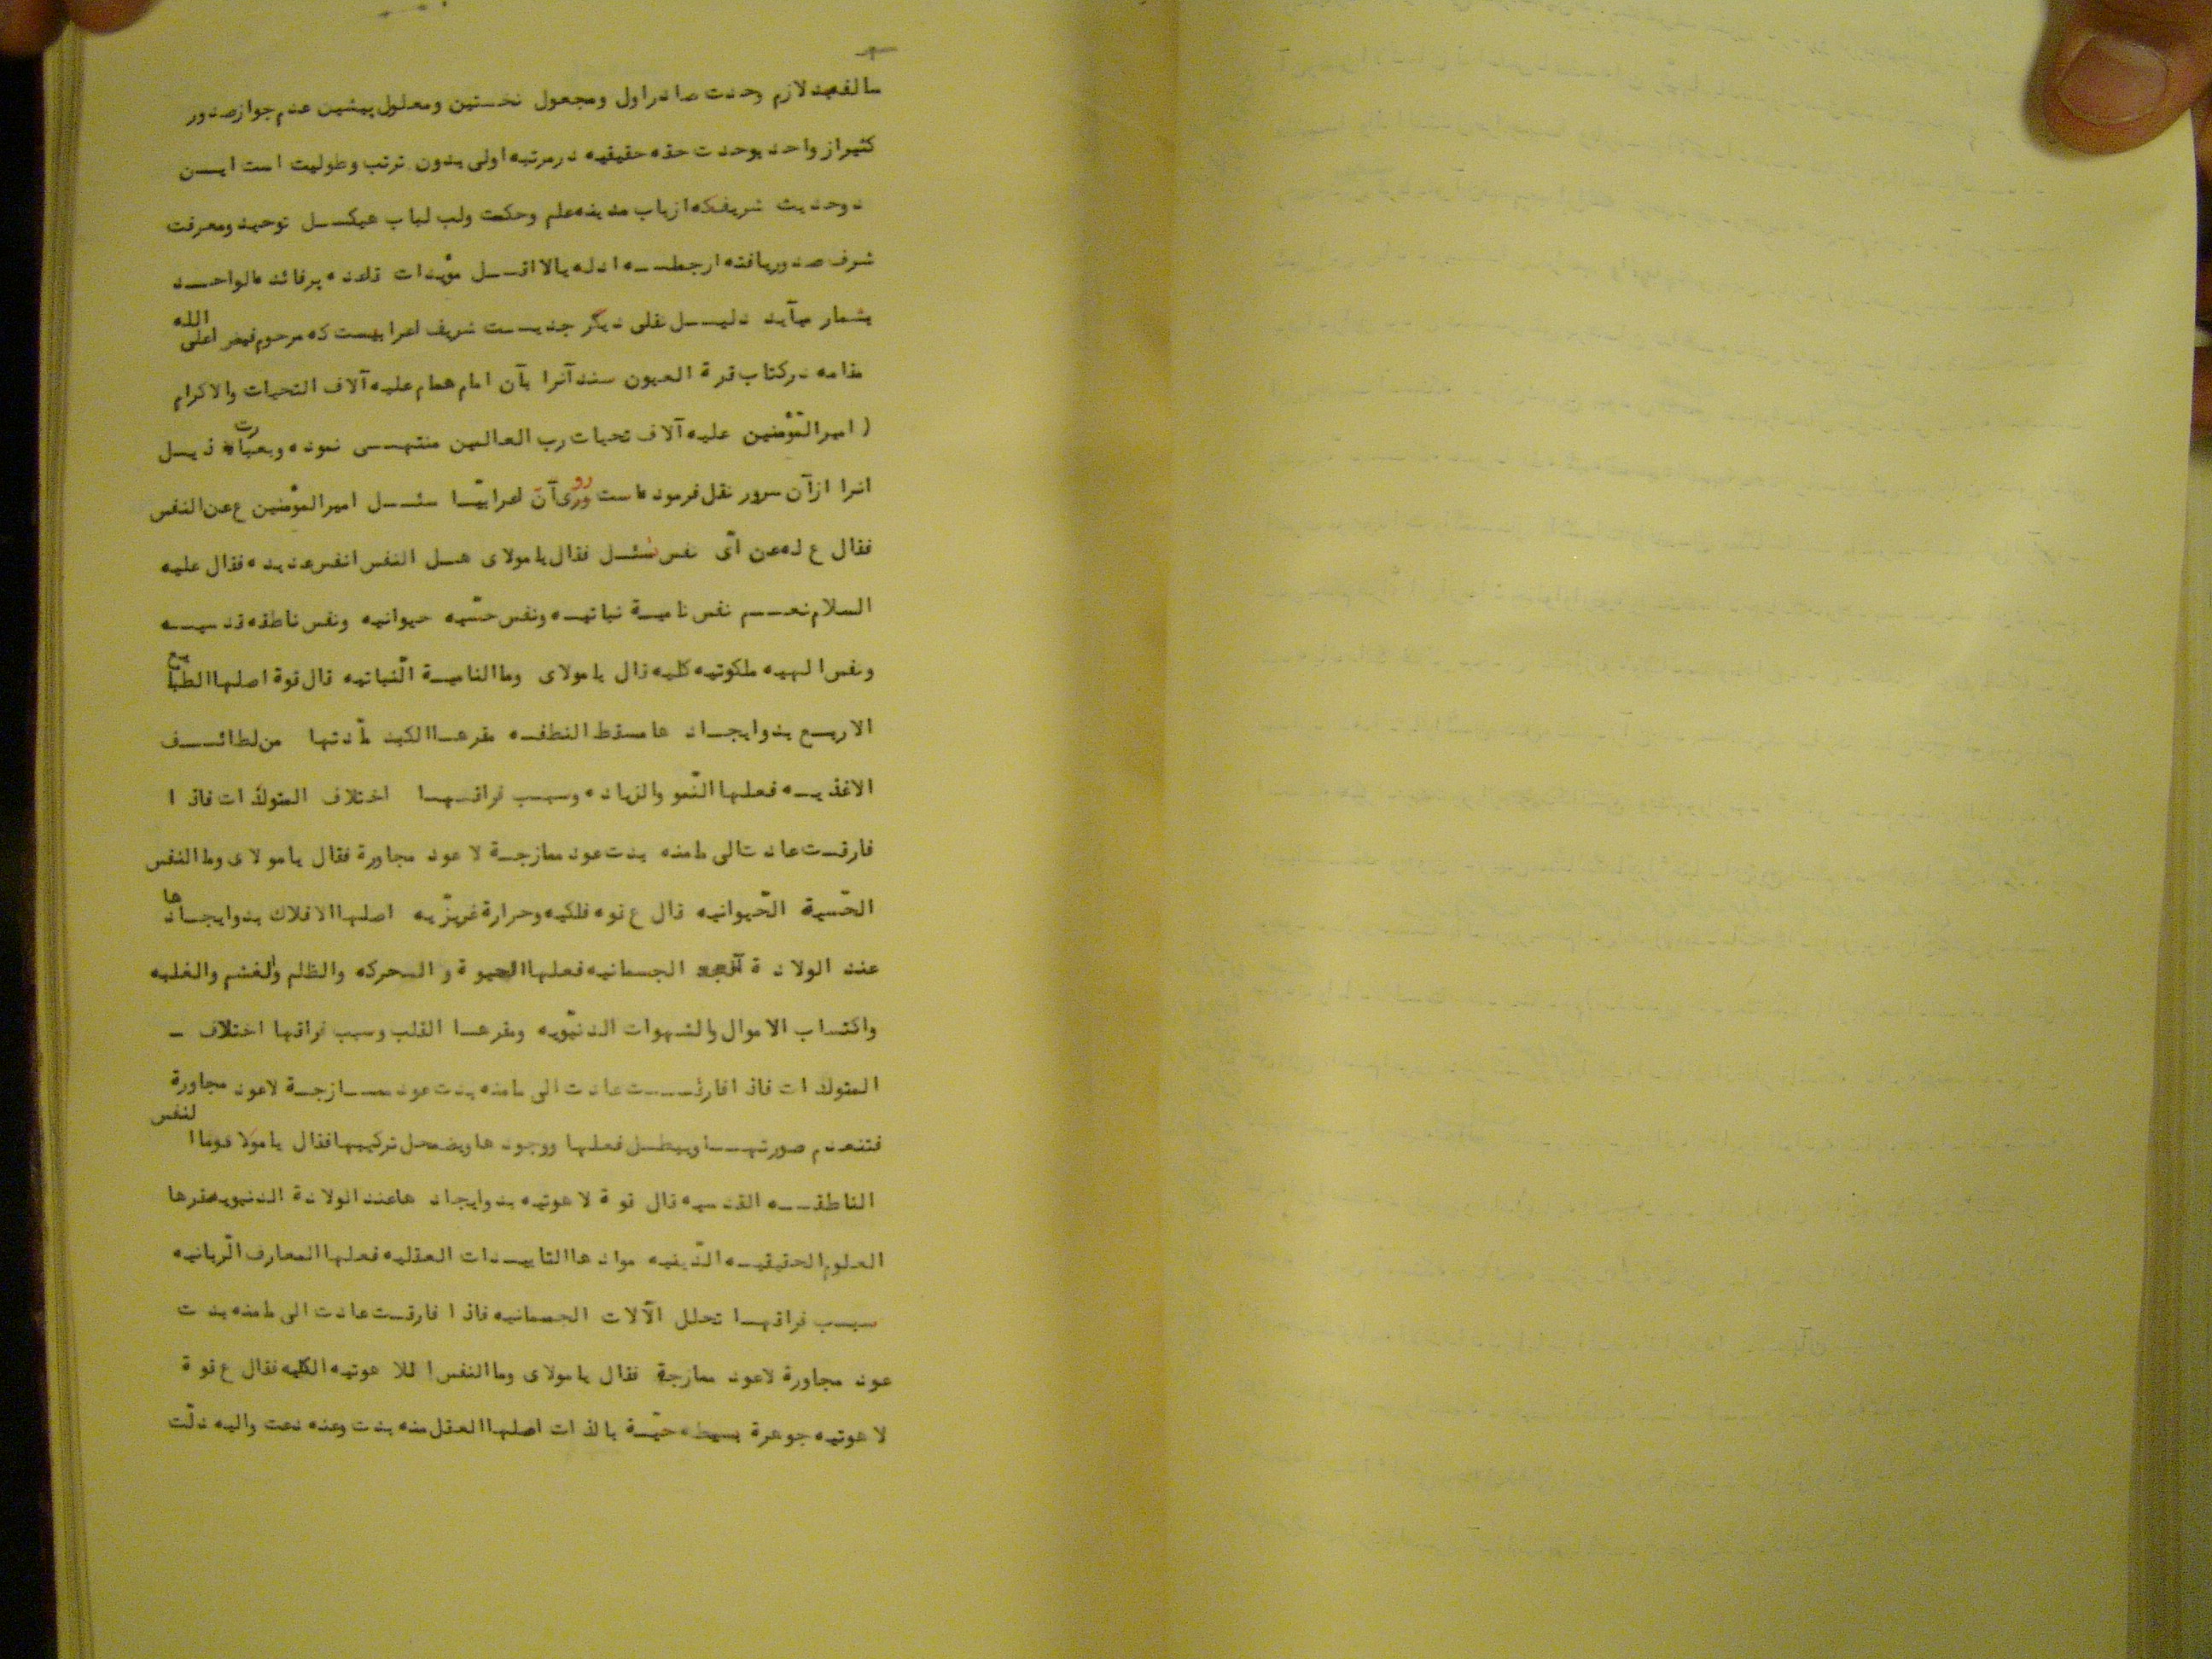 سالفه‌بد لازم وحدت صادر اول ومجعول نخستین ومعلول پیشین عدم جواز صدور
کثیر از واحد بوحدت حقه حقیقیه درمرتبه اولی بدون ترتب وطولیت است ایـــن
دوحدیث شریفکه ازباب مدینه علم وحکمت ولب لباب هیکـــل توحید ومعرفت
شرف صدور یافته ازجملــه ادله یالااقـــل مؤیدات قاعده برقائده الواحـــد
بشمار میآید دلیـــل نقلی دیگر حدیـــث شریف اعرابیست که مرحوم فیض اعلی الله
مقامه درکتاب قرة العیون سند آنرا بآن امام همام علیه آلاف التحیات والاکرام
( امیرالمؤمنین علیه آلاف تحیات رب العالمین منتهـــی نموده وبعبارت ذیـــل
انرا ازآن سرور نقل فرموده است روی آن اعرابیّـــا سئـــل امیرالمؤمنین ع عن النفس
فقال ع له عن ای نفس تسئـــل فقال یامولای هـــل النفس انفس عدیده فقال علیه
السلام نعـــم نفس نامیـــة نباتیـــه ونفس حسّیه حیوانیه ونفس ناطقه قدسیـــه
ونفس الهیه ملکوتیه کلیه قال یامولای وماالنامیـــة النّباتیه قال قوة اصلهاالطبایع
الاربـــع بدوایجـــاد هامسقط النطفـــه مقرهـــاالکبد مادتها من لطائـــف
الاغذیـــه فعلهاالنّمو والزیاده وسبـــب فراقـــهـــا اختلاف المتولّدات فاذا
فارقـــت عادت الی مامنه بدت عود ممازجـــة لاعود مجاورة فقال یامولای وماالنفس
الحسّیة الحّیوانیه قال ع قوه فلکیه وحرارة غریزّیه اصلهاالافلاک بدوایجـــادها
عند الولادة الجسمانیه فعلهاالحیوة و الحرکه والظلم والغشم والغلبه
واکتساب الاموال والشهوات الدنیّویه ومقرهـــا القلب وسبب فراقها اختلاف ـ
المتولدات فاذافارقـــت عادت الی مامنه بدت عود ممـــازجـــة لاعود مجاورة
فتنعدم صورتهـــاویبطـــل فعلها ووجودهاویضمحل ترکیبهافقال یامولای وماالنفس
الناطقـــه القدسیه قال قوة لاهوتیه بدوایجادهاعندالولادة الدنیویه مقرها
العلوم الحقیقیـــه الدّینیه موادهاالتاییـــدات العقلیه فعلهاالمعارف الّربانیه
سبـــب فراقهـــا تحلل الآلات الجسمانیه فاذا فارقـــت عادت الی مامنه بدت
عود مجاورة لاعود ممازجة فقال یامولای وماالنفس اللاهوتیه الکلیه فقال ع قوة
لاهوتیه جوهرة بسیطه حیّـــة بالذات اصلهاالعقل منه بدت وعنه دعت والیه دلّت